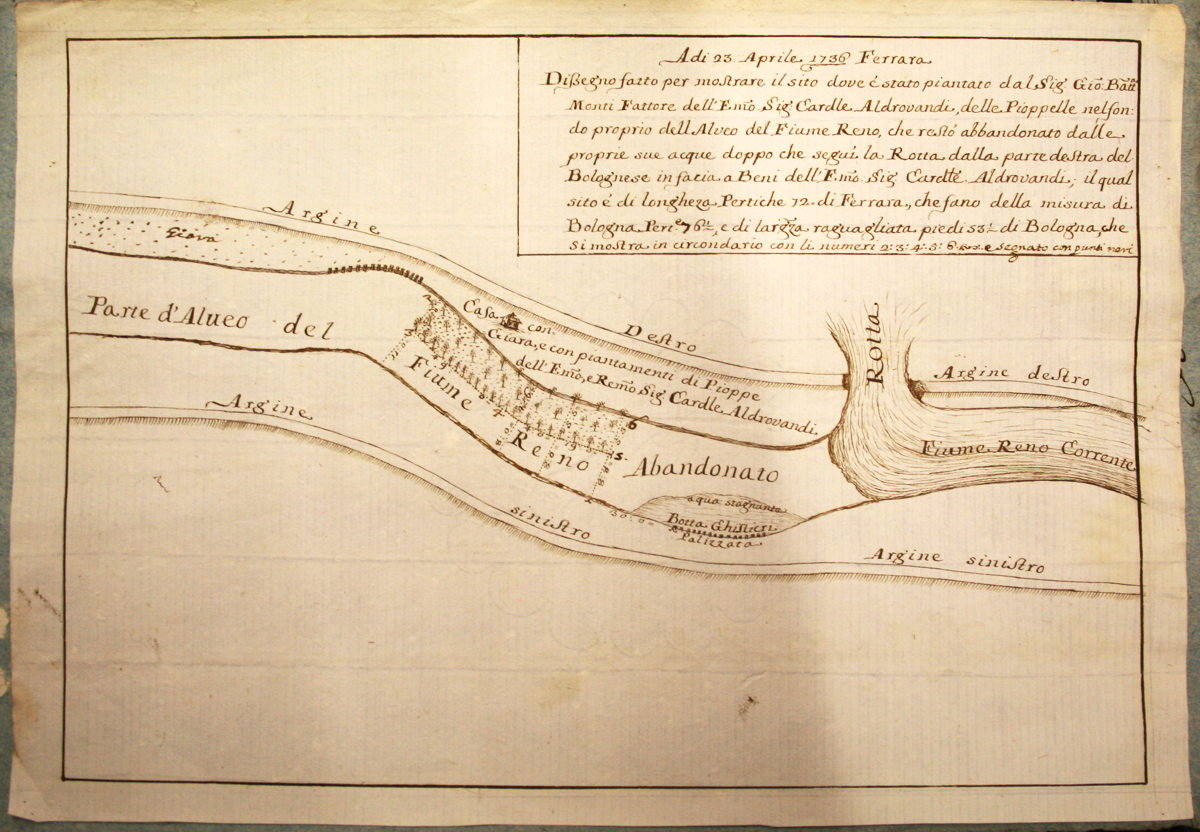 Adi 23 Aprile 1736 Ferrara
Dißegno fatto per mostrare il sito dove é stato piantato dal Sig Gio: Batt
Monti Fattore dell'Emo Sig Cardle Aldrovandi, delle Pioppelle nel fon:
do proprio dell Alveo del Fiume Reno, che restó abbandonato dalle
proprie sue acque doppo che seguí la Rotta dalla parte destra del
Bolognese in facia a Beni dell'Emo Sig Cardle Aldrovandi; il qual
sito é di longheza Pertiche 72. di Ferrara, che fano della misura di
Bologna Perte 76, e di largza raguagliata piedi 53 di Bologna, che
si mostra in circondario con li numeri 2: 3: 4: 5: 6 e segnato con punti neri
Argine
Giara
Parte d'Alveo del
2
Casa con
Giara, e con piantamenti di Pioppe
dell'Emo, e Remo Sig Cardle Aldrovandi
Destro
Rotta
Argine destro
Fiume
Reno
6
5
Abandonato
Fiume Reno Corrente
Argine
sinistro
aqua stagnante
Botta Ghislieri
Palizzata
Argine sinistro